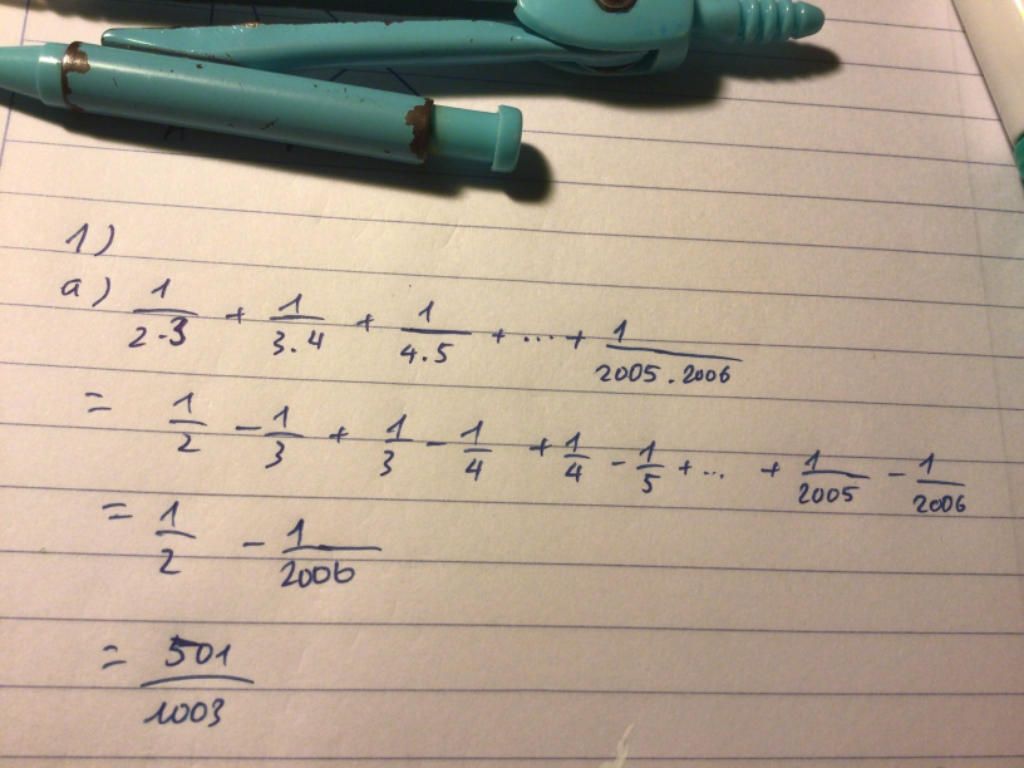 1)
a) 1/(2.3) + 1/(3.4) + 1/(4.5) + ... + 1/(2005.2006)
= 1/2 - 1/3 + 1/3 - 1/4 + 1/4 - 1/5 + ... + 1/2005 - 1/2006
= 1/2 - 1/2006
= 501/1003